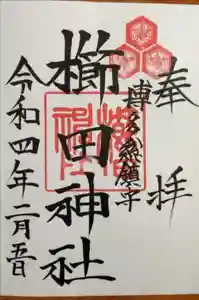 奉拝
博多総鎮守
櫛田神社
令和四年二月吾日